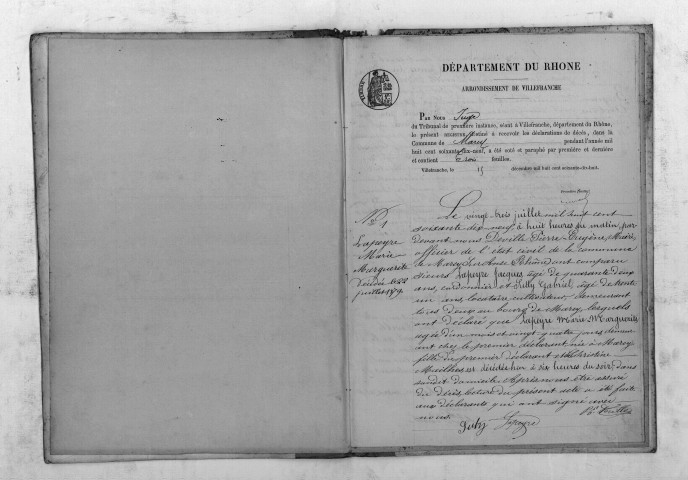 DÉPARTEMENT DU RHONE
ARRONDISSEMENT DE VILLEFRANCHE
PAR NOUS Juge
du Tribunal de première instance, séant à Villefranche, département du Rhône,
le présent destiné à recevoir les déclarations de décès, dans la
Commune de Marcy pendant l'année mil
huit cent soixante-dix-neuf, a été coté et paraphé par première et dernière
et contient trois feuilles.
Villefranche, le 15 décembre mil huit cent soixante-dix-huit.
N° 1
Lapeyre
Marie
Marguerite
Décédée le 22
juillet 1879.
Le vingt-trois juillet mil huit cent
soixante dix neuf, à huit heures du matin, par
devant nous Deville Pierre Eugène, Maire,
officier de l'état civil de la commune
de Marcy sur Anse (Rhône) ont comparu
sieurs Lapeyre Jacques âgé de quarante deux
ans, cordonnier et Gabriel, âgé de trente
un ans, locataire cultivateur, demeurant
tous deux au bourg de Marcy, lesquels
ont déclaré que Lapeyre Marie Marguerite
agée d'un mois et vingt quatre jours demeur
ant chez le premier déclarant née à Marcy
fille du premier déclarant et Christine
est décédée hier à six heures du soir, dans
sondit domicile. Après nous être assuré
du décès, lecture du présent acte a été faite
aux déclarants qui ont signé avec
nous.
Lapeyre